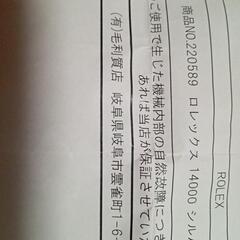 ROLEX
商品NO.220589 ロレックス 14000 シル
ご使用で生じた機械内部の自然故障につき
あれば当店が保証させてい
(有)毛利質店 岐阜県岐阜市雲雀町1-6-